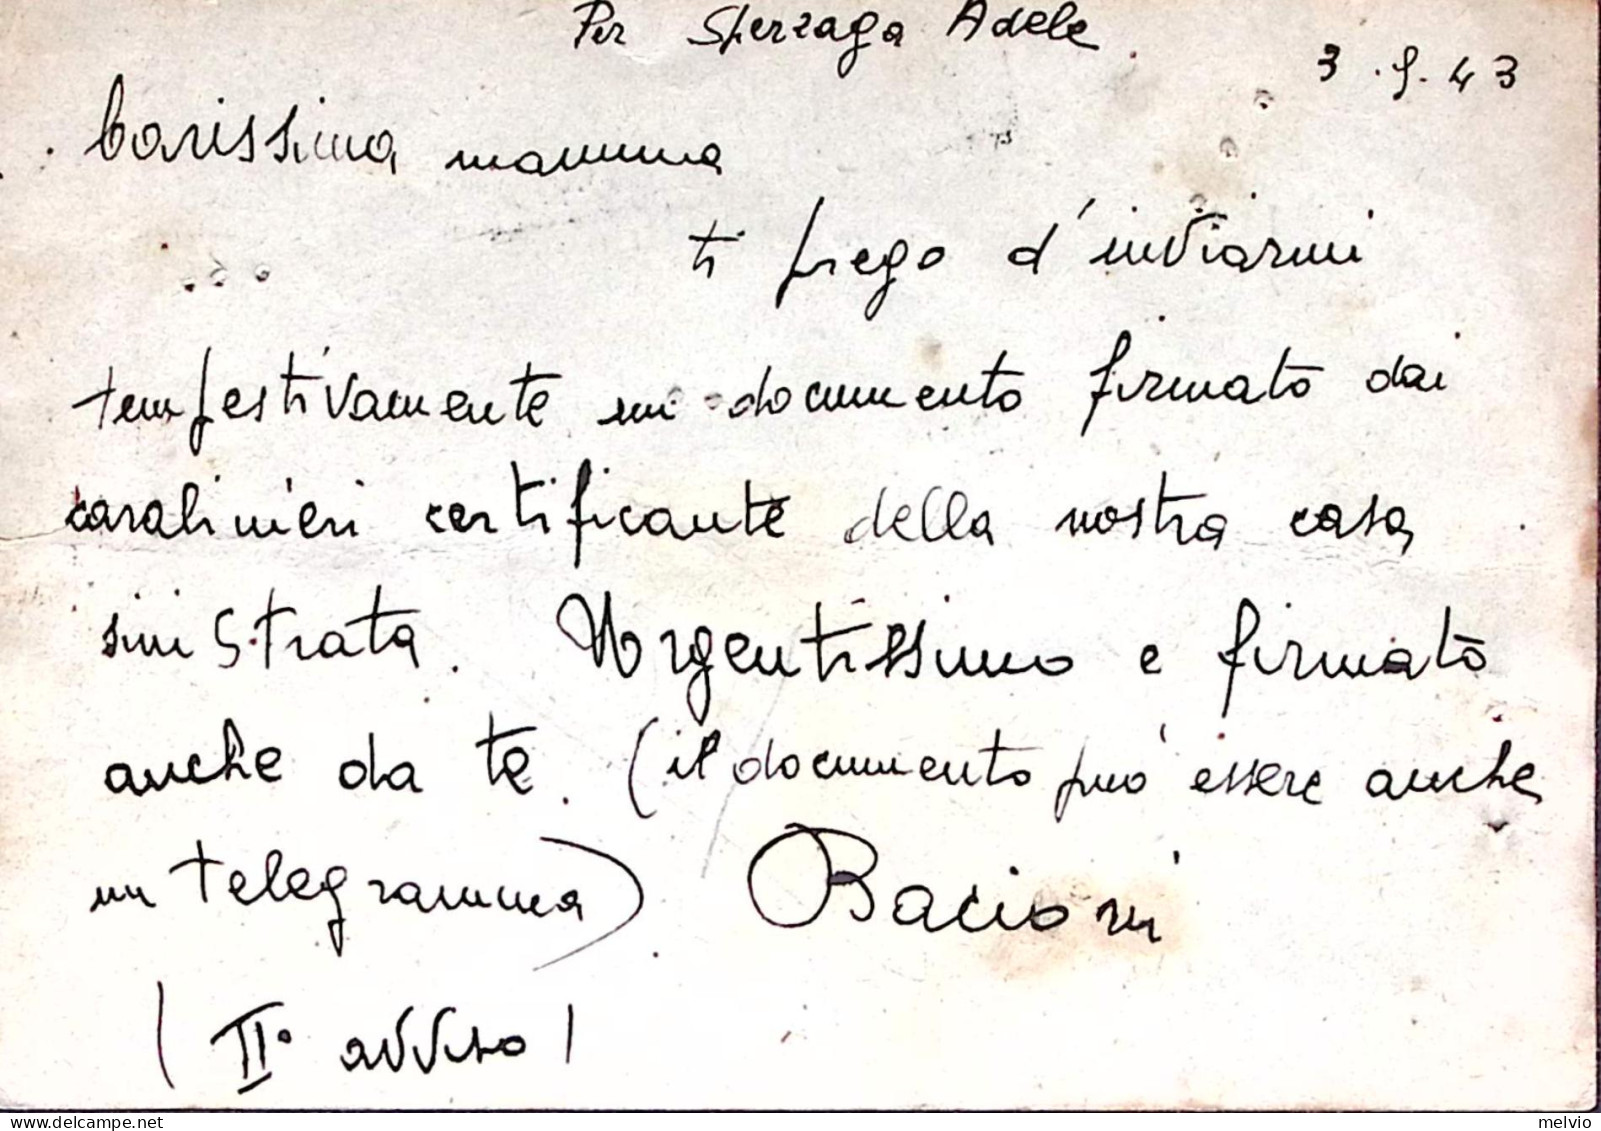 Per Sperzaga Adele
3.9.43
Carissima mamma
ti prego d'inviarmi
tempestivamente un documento firmato dai
carabinieri certificante della nostra casa
sinistrata. Urgentissimo e firmato
anche da te. (il documento può essere anche
un telegramma). Bacioni
(II° avviso)
melvio